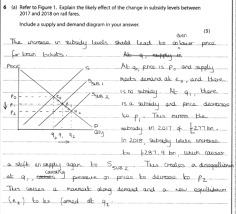 6 (a) Refer to Figure 1. Explain the likely effect of the change in subsidy levels between
2017 and 2018 on rail fares.
Include a supply and demand diagram in your answer.
(5)
The increase in subsidy levels should lead to a lower price
for train tickets. At q, supply
Price S At q, price is P, and supply
Sub 1 meets demand at e, and there
Sub 2 is no subsidy. At q1, there
P is a subsidy and price decreases
P1 to P1. This mirrors the
P2 subsidy in 2017 of £277bn.
D In 2018, subsidy levels increase
q q1 q2 Qty to £287.4 bn, which causes
a shift in supply again to Ssub 2. This creates a disequilibrium
at q1, causing pressure on price to decrease to P2.
This causes a movement along demand and a new equilibrium
(e2) to be formed at q2.